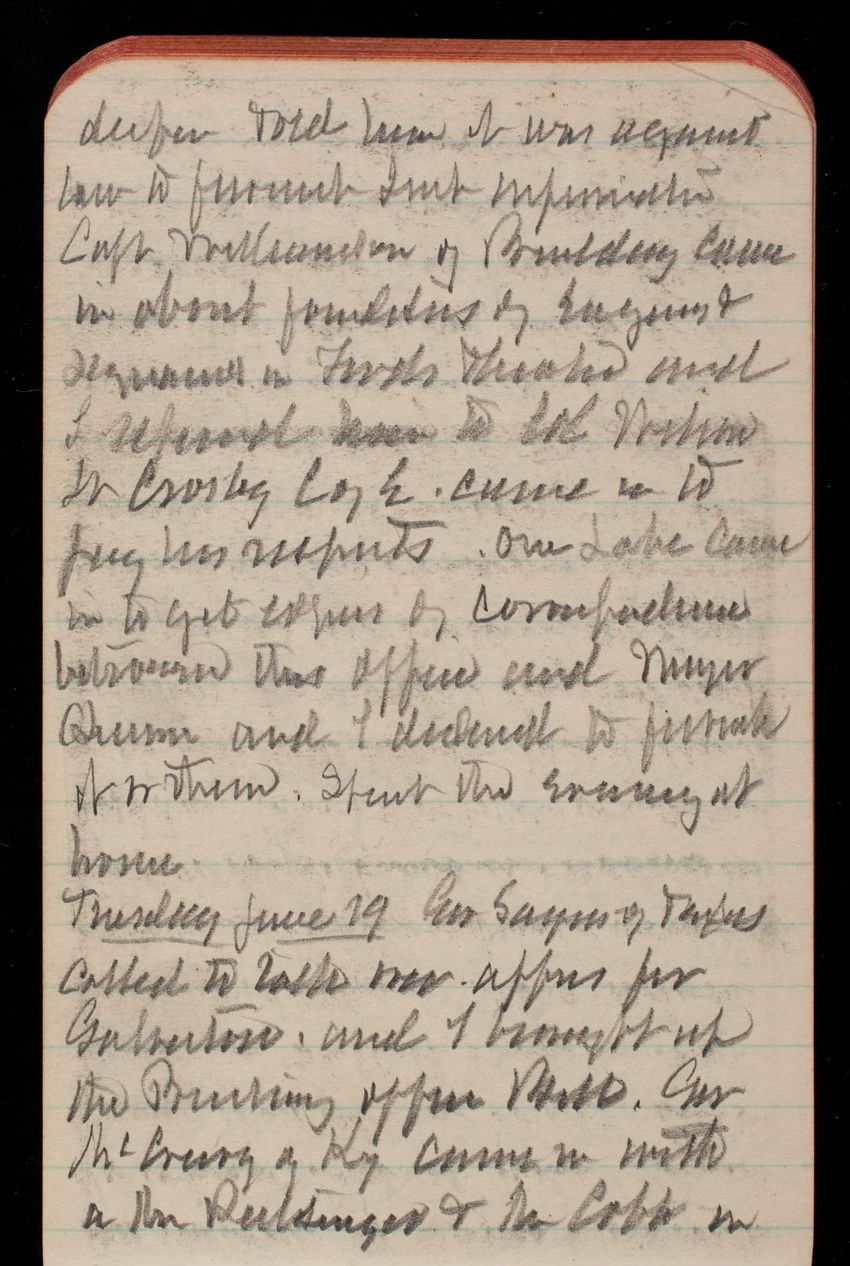 deeper told him it was against
law to furnish such information
Capt Williamson of Building came
in about
in Fords Theatre and
I referred him to Col Wilson
Lt Crosby Cog E. came in to
pay his respects. One Labe came
in to get copies of correspondence
between this office and Major
Quinn and I declined to furnish
it to them. Spent the evening at
home
Tuesday June 19 Gov Sayers of Texas
called to talk over affrs for
Galveston. and I brought up
the Printing office Bill. Gov
McCreary of Ky came in with
a Mr & Mr Cobb in